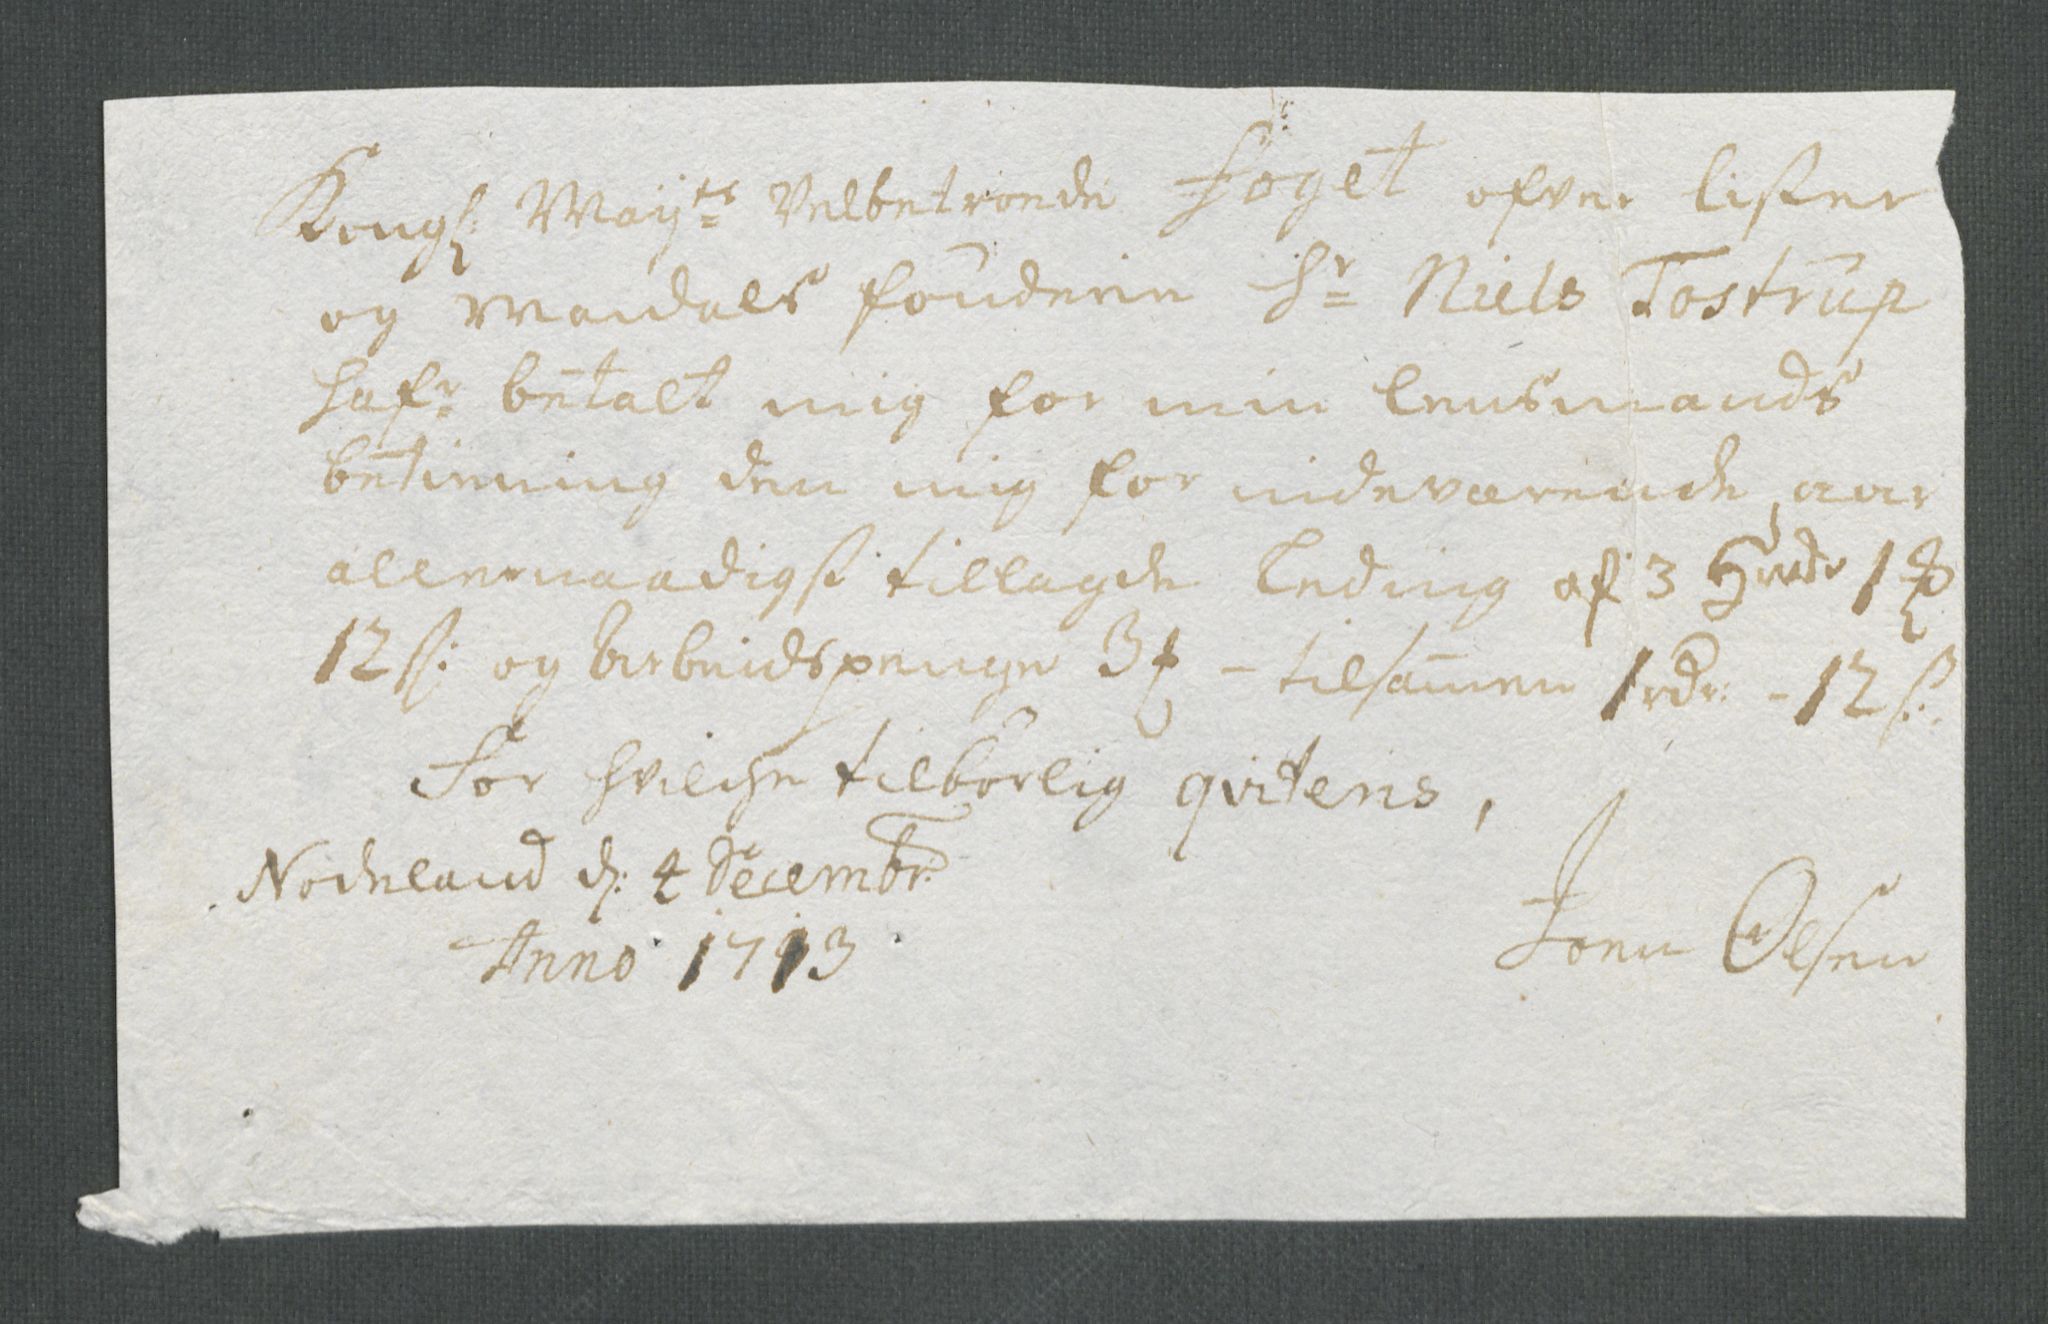 Kongl: Mayts Velbetroede Foget ofver Lister
og Mandals foüderie Hr Niels Tostrüp
hafr betalt mig for min Lensmands
betienning den mig for indeværende aar
allernaadigst tillagde Leding af 3
12 s: og Arbeidspenge 3 - tilsam̄en 1 rdr: - 12 s:
For hvilche tilbørlig qvitens,
Nodeland d: 4 Decembr:
Anno 1713
Joen Olsen